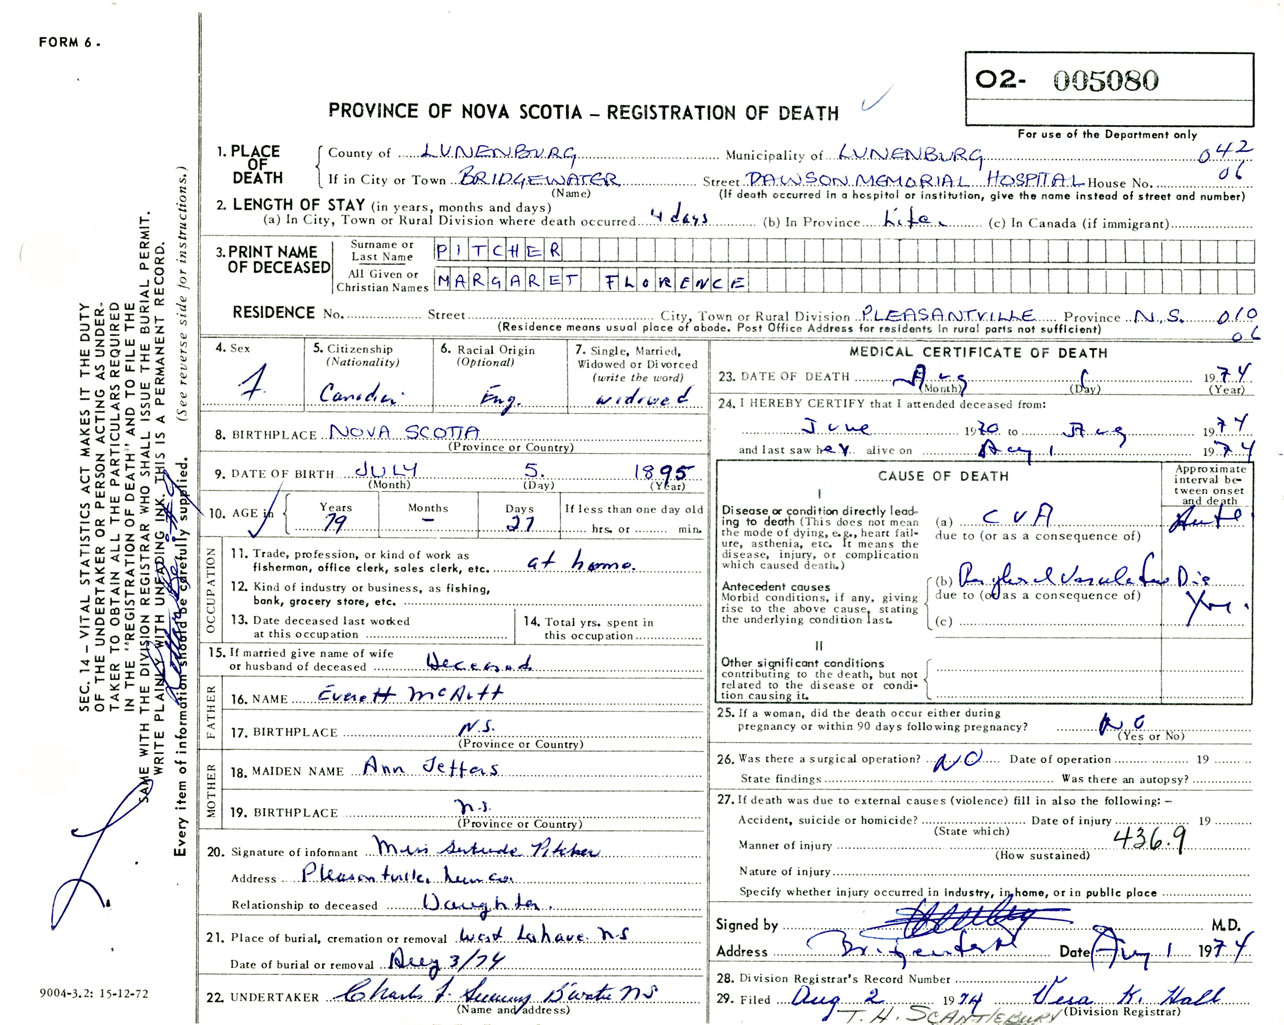 FORM 6.
O2- 005080
PROVINCE OF NOVA SCOTIA – REGISTRATION OF DEATH
For use of the Department only
1. PLACE OF DEATH County of LUNENBURG Municipality of LUNENBURG 042
If in City or Town BRIDGEWATER Street DAWSON MEMORIAL HOSPITAL House No. 06
(Name) (If death occurred in a hospital or institution, give the name instead of street and number)
2. LENGTH OF STAY (in years, months and days)
(a) In City, Town or Rural Division where death occurred 4 days (b) In Province Life (c) In Canada (if immigrant)
3. PRINT NAME OF DECEASED
Surname or Last Name PITCHER
All Given or Christian Names MARGARET FLORENCE
RESIDENCE No. Street City, Town or Rural Division PLEASANTVILLE Province N.S. 010
(Residence means usual place of abode. Post Office Address for residents in rural parts not sufficient) 06
4. Sex
5. Citizenship (Nationality) Canadian
6. Racial Origin (Optional) Eng.
7. Single, Married, Widowed or Divorced (write the word) widowed
8. BIRTHPLACE NOVA SCOTIA
(Province or Country)
9. DATE OF BIRTH JULY 5. 1895
(Month) (Day) (Year)
10. AGE in Years 79 Months – Days 27 If less than one day old hrs. or min.
OCCUPATION
11. Trade, profession, or kind of work as fisherman, office clerk, sales clerk, etc. at home.
12. Kind of industry or business, as fishing, bank, grocery store, etc.
13. Date deceased last worked at this occupation
14. Total yrs. spent in this occupation
15. If married give name of wife or husband of deceased Deceased
FATHER
16. NAME Everett
17. BIRTHPLACE N.S.
(Province or Country)
MOTHER
18. MAIDEN NAME Ann Jeffers
19. BIRTHPLACE N.S.
(Province or Country)
20. Signature of informant Miss Gertrude Pitcher
Address Pleasantville, Lun. Co.
Relationship to deceased Daughter.
21. Place of burial, cremation or removal West Lahave NS
Date of burial or removal Aug 3/74
22. UNDERTAKER Charles B'water NS
(Name and address)
MEDICAL CERTIFICATE OF DEATH
23. DATE OF DEATH Aug 1 1974
(Month) (Day) (Year)
24. I HEREBY CERTIFY that I attended deceased from:
June 1970 to Aug 1974
and last saw her alive on Aug 1 1974
CAUSE OF DEATH
Approximate interval between onset and death
I
Disease or condition directly leading to death (This does not mean the mode of dying, e.g., heart failure, asthenia, etc. It means the disease, injury, or complication which caused death.)
(a) CVA Acute
due to (or as a consequence of)
Antecedent causes
Morbid conditions, if any, giving rise to the above cause, stating the underlying condition last.
(b) Peripheral Vascular Dis
due to (or as a consequence of) Yrs.
(c)
II
Other significant conditions contributing to the death, but not related to the disease or condition causing it.
25. If a woman, did the death occur either during pregnancy or within 90 days following pregnancy? NO
(Yes or No)
26. Was there a surgical operation? NO Date of operation 19
State findings Was there an autopsy?
27. If death was due to external causes (violence) fill in also the following: –
Accident, suicide or homicide? Date of injury 19
(State which) 436.9
Manner of injury
(How sustained)
Nature of injury
Specify whether injury occurred in industry, in home, or in public place
Signed by M.D.
Address Bridgewater Date Aug 1 1974
28. Division Registrar's Record Number
29. Filed Aug 2 1974 Vera K. Hall
T. H. SCANTLEBURY (Division Registrar)
SEC. 14 – VITAL STATISTICS ACT MAKES IT THE DUTY
OF THE UNDERTAKER OR PERSON ACTING AS UNDER-
TAKER TO OBTAIN ALL THE PARTICULARS REQUIRED
IN THE "REGISTRATION OF DEATH" AND TO FILE THE
SAME WITH THE DIVISION REGISTRAR WHO SHALL ISSUE THE BURIAL PERMIT.
WRITE PLAINLY WITH UNFADING INK. THIS IS A PERMANENT RECORD.
Every item of information should be carefully supplied. (See reverse side for instructions.)
9004-3.2: 15-12-72